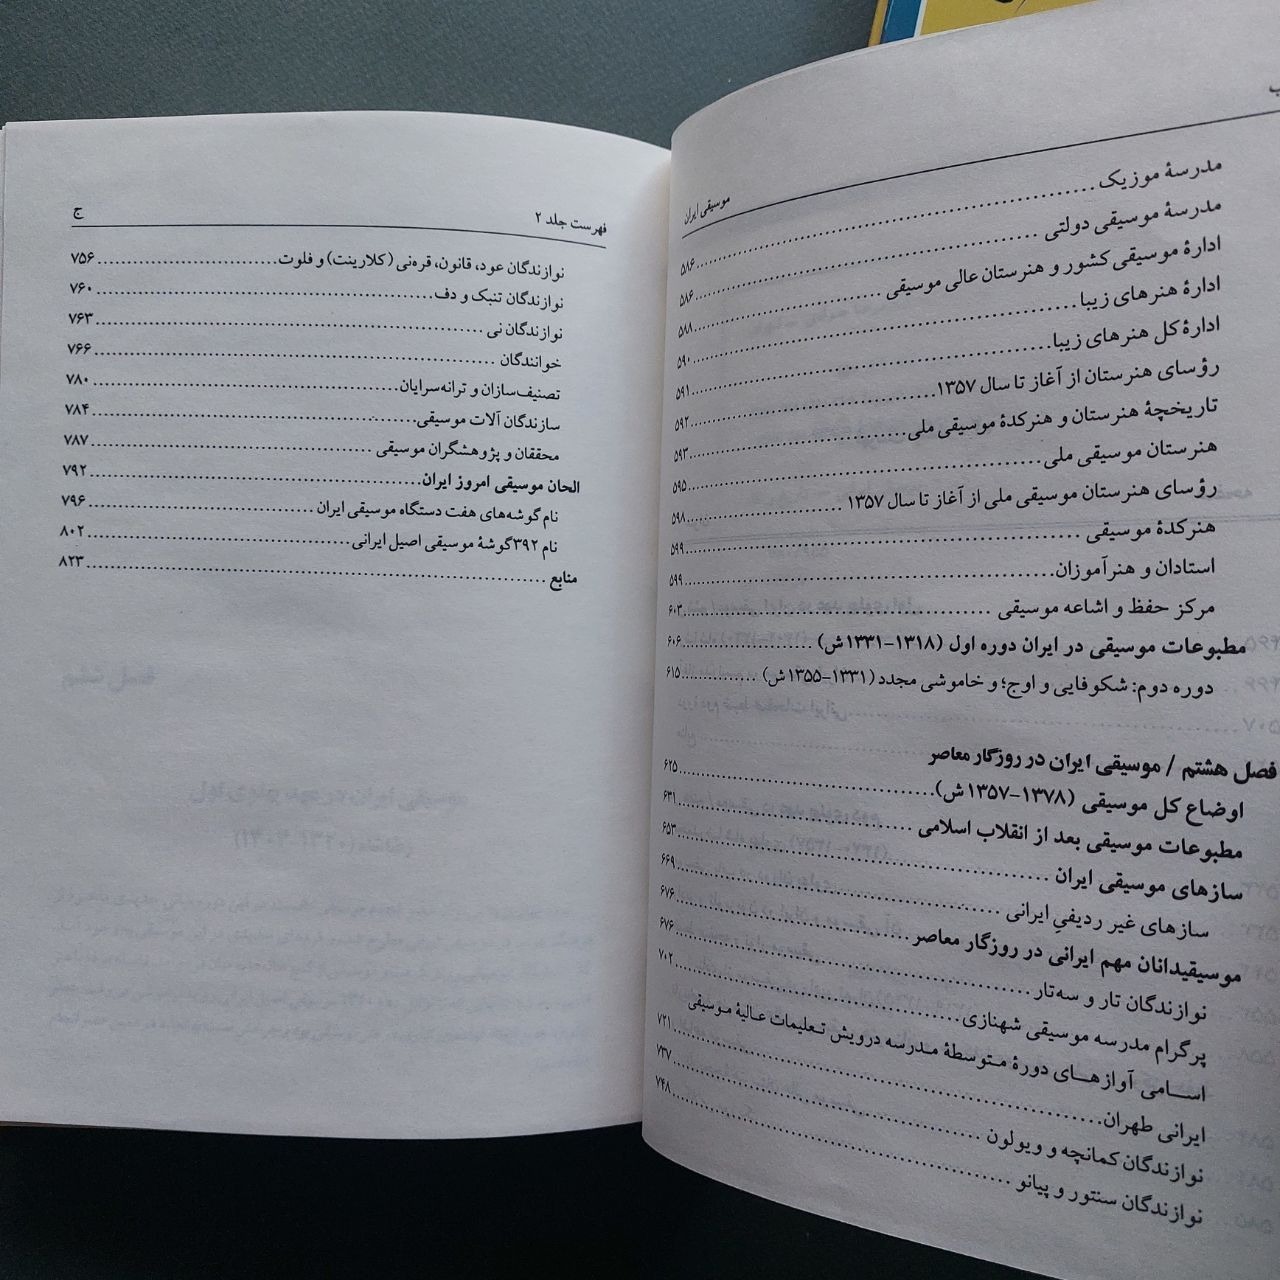 ب
موسیقی ایران
مدرسهٔ موزیک ........ ۵۸۶
مدرسهٔ موسیقی دولتی ........ ۵۸۶
ادارهٔ موسیقی کشور و هنرستان عالی موسیقی ........ ۵۸۸
ادارهٔ هنرهای زیبا ........ ۵۹۰
ادارهٔ کل هنرهای زیبا ........ ۵۹۱
رؤسای هنرستان از آغاز تا سال ۱۳۵۷ ........ ۵۹۲
تاریخچهٔ هنرستان و هنرکدهٔ موسیقی ملی ........ ۵۹۳
هنرستان موسیقی ملی ........ ۵۹۵
رؤسای هنرستان موسیقی ملی از آغاز تا سال ۱۳۵۷ ........ ۵۹۸
هنرکدهٔ موسیقی ........ ۵۹۹
استادان و هنرآموزان ........ ۵۹۹
مرکز حفظ و اشاعه موسیقی ........ ۶۰۳
مطبوعات موسیقی در ایران دوره اول (۱۳۱۸-۱۳۳۱ش) ........ ۶۰۶
دوره دوم: شکوفایی و اوج؛ و خاموشی مجدد (۱۳۳۱-۱۳۵۵ش) ........ ۶۱۵
فصل هشتم / موسیقی ایران در روزگار معاصر
اوضاع کل موسیقی (۱۳۷۸-۱۳۵۷ش) ........ ۶۲۵
مطبوعات موسیقی بعد از انقلاب اسلامی ........ ۶۳۱
سازهای موسیقی ایران ........ ۶۵۳
سازهای غیر ردیفیِ ایرانی ........ ۶۶۹
موسیقیدانان مهم ایرانی در روزگار معاصر ........ ۶۷۶
نوازندگان تار و سه‌تار ........ ۶۷۶
پرگرام مدرسه موسیقی شهنازی ........ ۷۰۲
اسامی آوازهای دورهٔ متوسطهٔ مدرسه درویش تعلیمات عالیهٔ موسیقی
ایرانی طهران ........ ۷۲۱
نوازندگان کمانچه و ویولون ........ ۷۳۷
نوازندگان سنتور و پیانو ........ ۷۴۸
فهرست جلد ۲
ج
نوازندگان عود، قانون، قره‌نی (کلارینت) و فلوت ........ ۷۵۶
نوازندگان تنبک و دف ........ ۷۶۰
نوازندگان نی ........ ۷۶۳
خوانندگان ........ ۷۶۶
تصنیف‌سازان و ترانه‌سرایان ........ ۷۸۰
سازندگان آلات موسیقی ........ ۷۸۴
محققان و پژوهشگران موسیقی ........ ۷۸۷
الحان موسیقی امروز ایران ........ ۷۹۲
نام گوشه‌های هفت دستگاه موسیقی ایران ........ ۷۹۶
نام ۳۹۲گوشهٔ موسیقی اصیل ایرانی ........ ۸۰۲
منابع ........ ۸۲۳